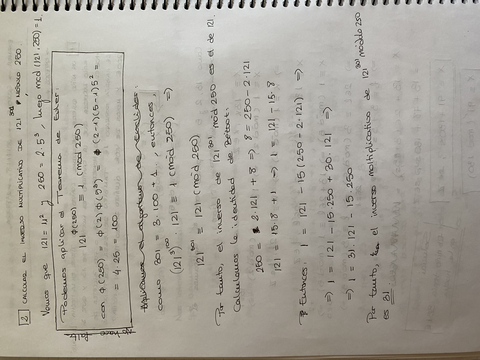 2 CALCULAR EL INVERSO MULTIPLICATIVO DE 121^301 MÓDULO 250
Vemos que 121 = 11² y 250 = 2·5³, luego mcd (121, 250) = 1.
No hace falta
Podemos aplicar el Teorema de Euler
121^φ(250) ≡ 1 (mod 250)
con φ(250) = φ(2) φ(5³) = (2-1)(5-1)5² =
= 4·25 = 100
como 301 = 3·100 + 1, entonces
(121³)^100 · 121 ≡ 1 (mod 250) ⇒
121^301 ≡ 121 (mod 250)
Por tanto, el inverso de 121^301 mod 250 es el de 121.
Calculamos la identidad de Bézout:
250 = 2·121 + 8 ⇒ 8 = 250 - 2·121
121 = 15·8 + 1 ⇒ 1 = 121 - 15·8
Entonces: 1 = 121 - 15(250 - 2·121) ⇒
⇒ 1 = 121 - 15·250 + 30·121 ⇒
⇒ 1 = 31·121 - 15·250
Por tanto, el inverso multiplicativo de 121^301 módulo 250
es 31